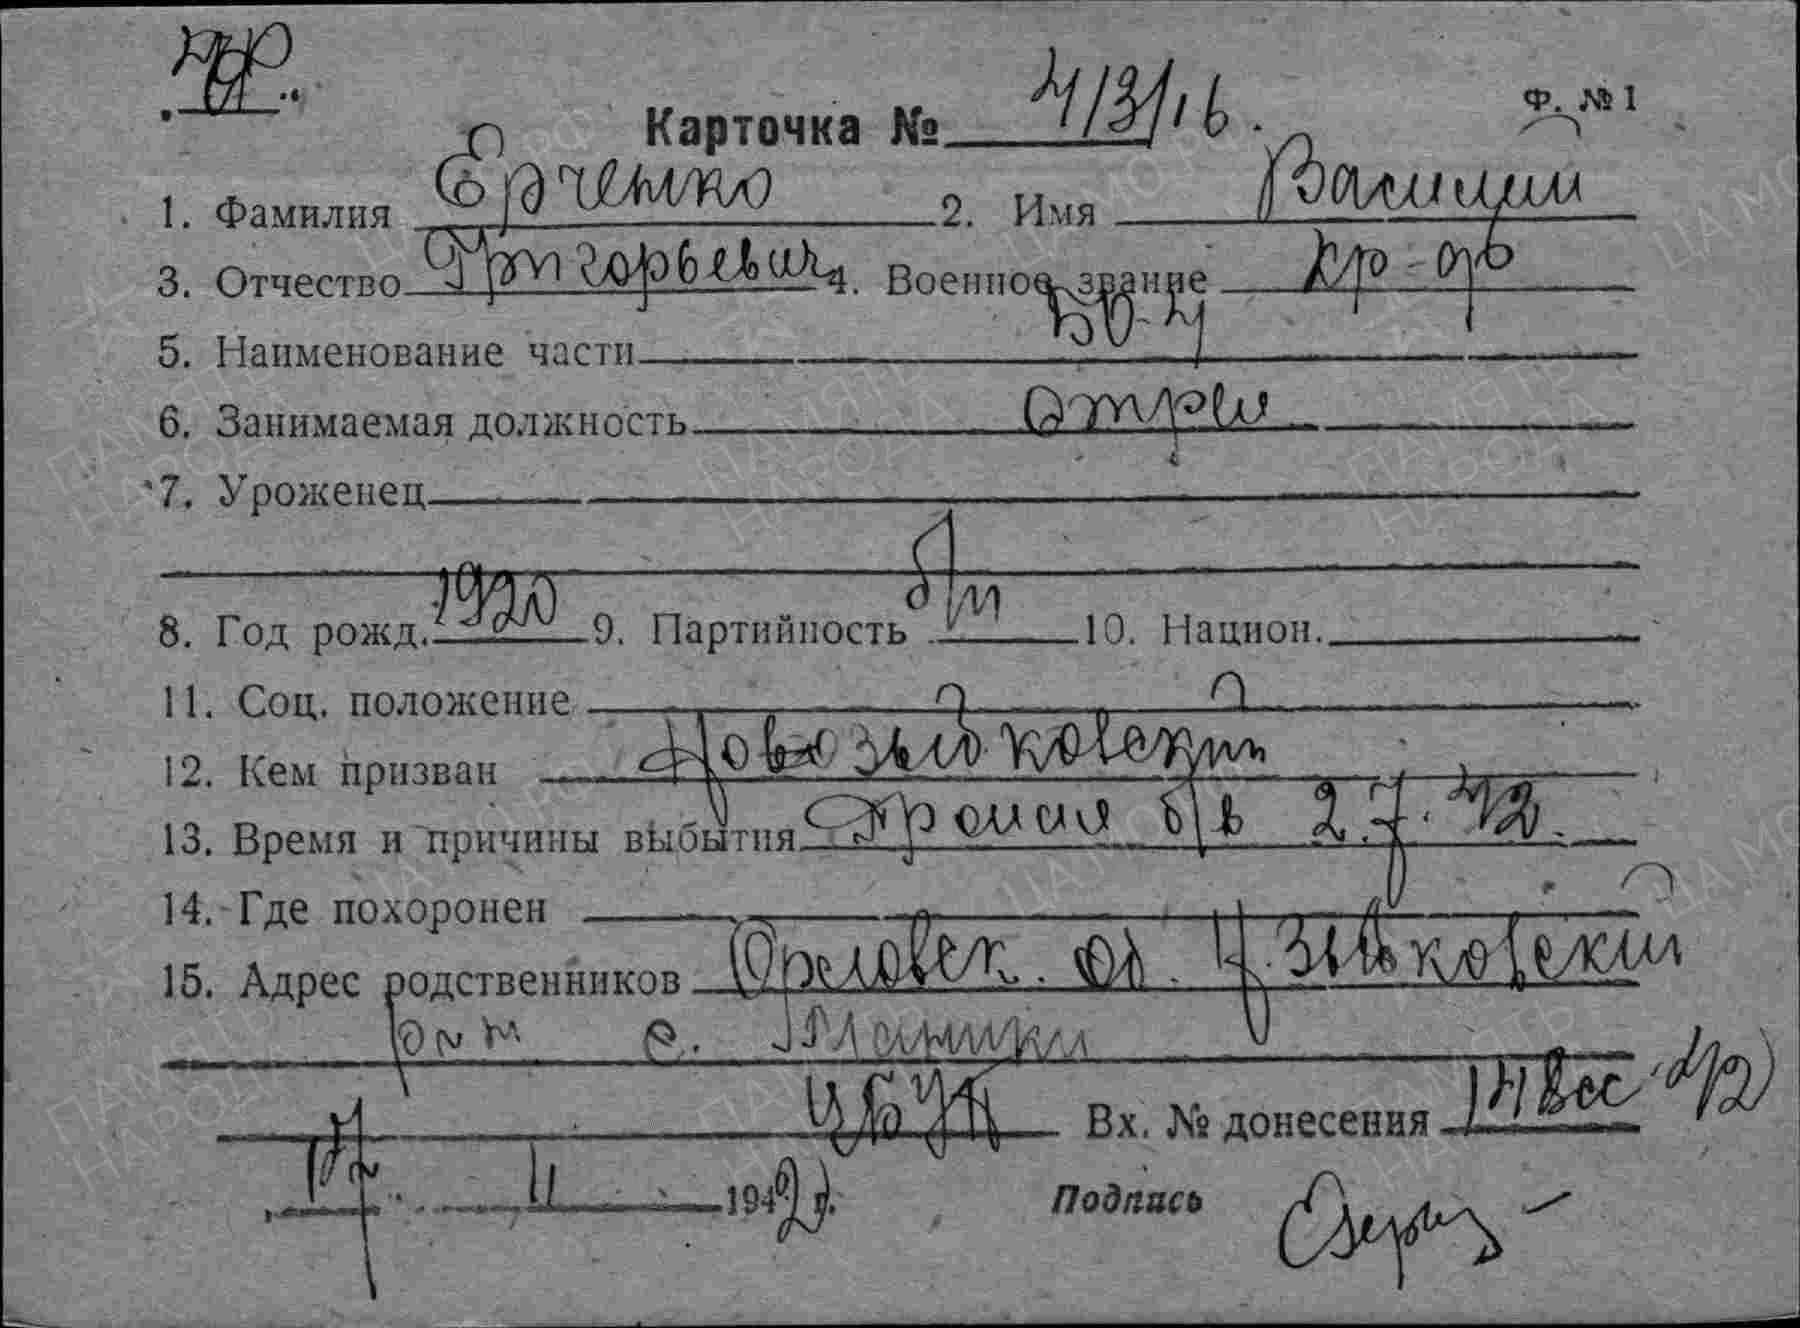 Ф. № 1
Карточка № 4/3/16.
1. Фамилия Ерченко 2. Имя Василий
3. Отчество Григорьевич 4. Военное звание кр-ф
5. Наименование части 50-я
6. Занимаемая должность стрел
7. Уроженец
8. Год рожд. 1920 9. Партийность б/п 10. Национ.
11. Соц. положение
12. Кем призван Новозыбковский
13. Время и причины выбытия Пропал б/в 2.7.42.
14. Где похоронен
15. Адрес родственников Орловск. об. Н.Зыбковский
рн с.
Вх. № донесения
17 11 1942 г.
Подпись